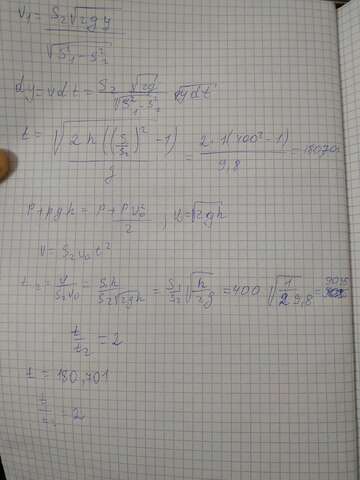 v₁ = S₂√2gy / √S₁² - S₂²
dy = v dt = S₂ √2g / √S₁² - S₂² √y dt
t = √2h((S₁/S₂)² - 1) / g = 2·1(400² - 1) / 9,8 = 180,701
P + pgh = P + pv₀² / 2 ; = √2gh
V = S₂ v₀ t²
t₂ = V / S₂v₀ = S₁h / S₂√2gh = S₁/S₂ √h/2g = 400 √1 / 2 9,8 =
t / t₂ = 2
t = 180,701
t / = 2